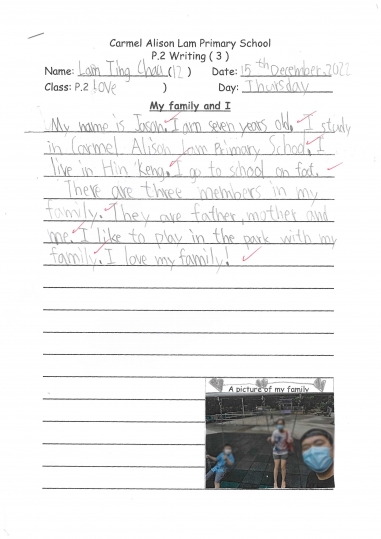 Carmel Alison Lam Primary School
P.2 Writing ( 3 )
Name: Lam Ting Chau (12) Date: 15th December, 2022
Class: P.2 (Love ) Day: Thursday
My family and I
My name is Jason. I am seven years old. I study
in Carmel Alison Lam Primary School. I
live in Hin Keng. I go to school on foot.
There are three members in my
family. They are father, mother and
me. I like to play in the park with my
family. I love my family!
A picture of my family